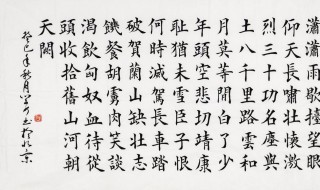 瀟瀟雨歇擡望眼
仰天長嘯壯懷激
烈三十功名塵與
土八千里路雲和
月莫等閑白了少
年頭空悲切靖康
耻猶未雪臣子恨
何時滅駕長車踏
破賀蘭山缺壯志
饑餐胡虜肉笑談
渴飲匈奴血待從
頭收拾舊山河朝
天闕
癸巳年秋月书於北京